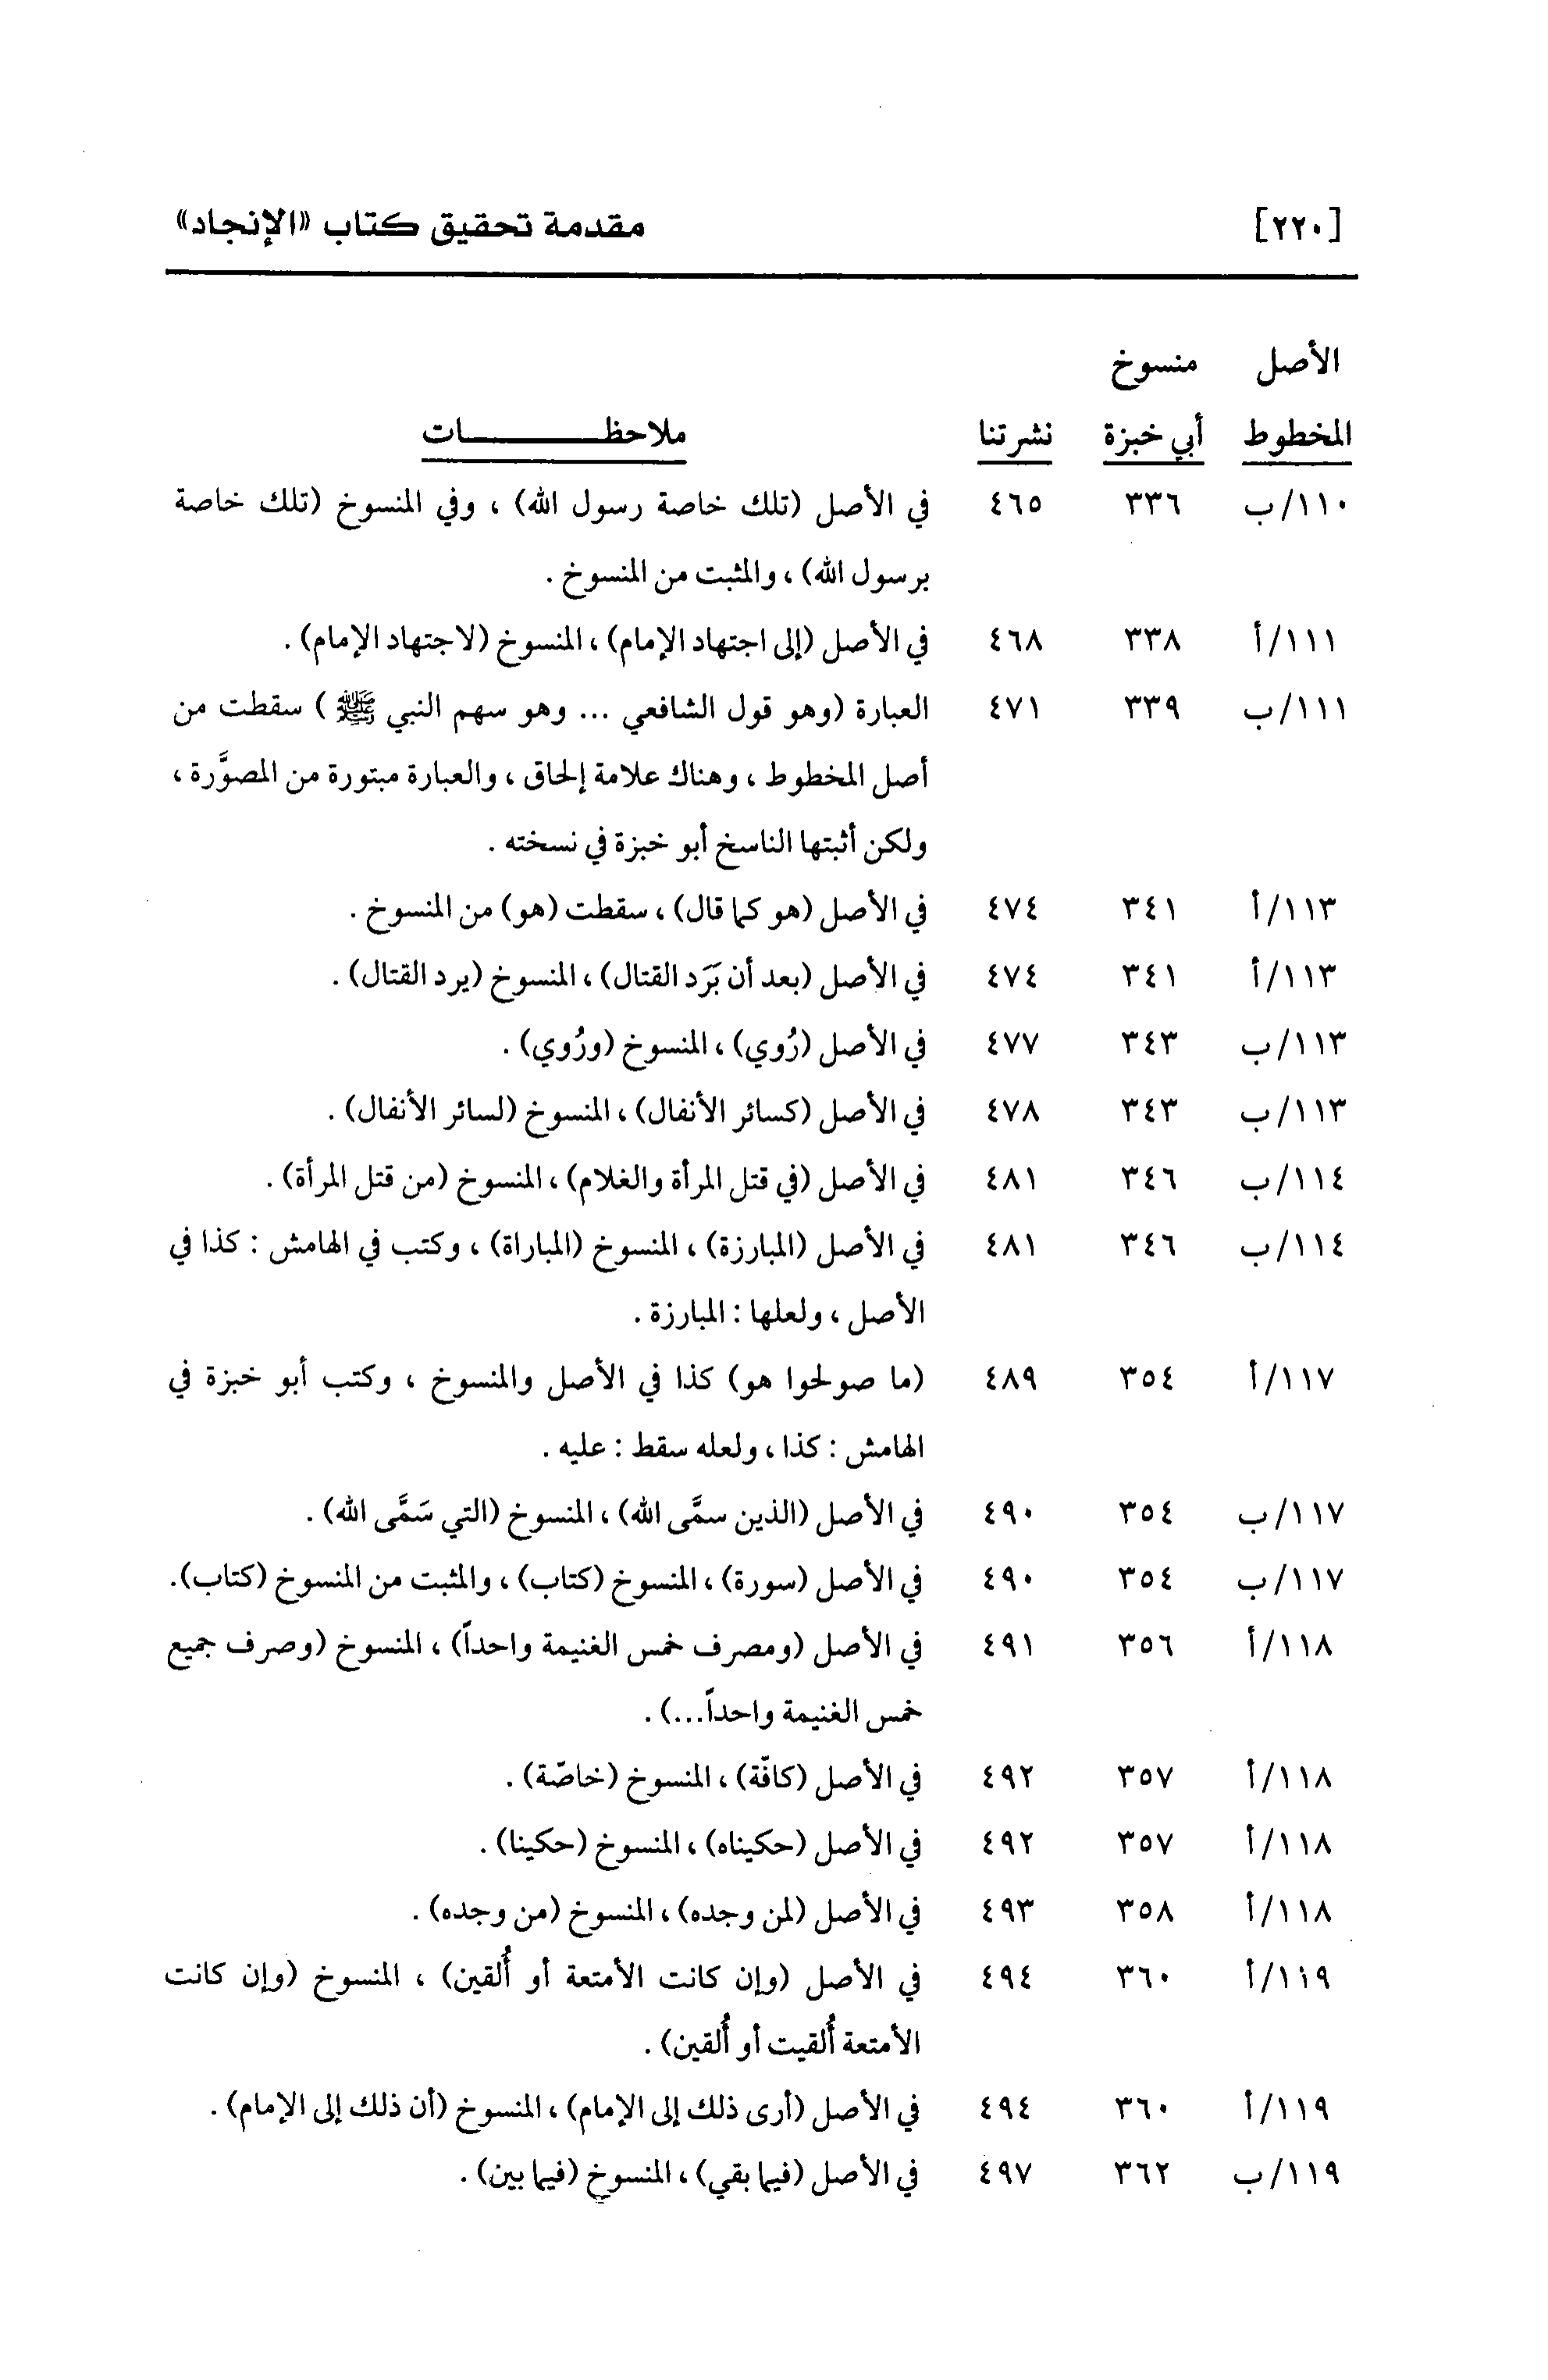 [٢٢٠] مقدمة تحقيق كتاب «الإنجاد»
الأصل منسوخ
المخطوط أبي خبزة نشرتنا ملاحظـــــــات
١١٠/ب ٣٣٦ ٤٦٥ في الأصل (تلك خاصة رسول الله) ، وفي المنسوخ (تلك خاصة
برسول الله) ، والمثبت من المنسوخ .
١١١/أ ٣٣٨ ٤٦٨ في الأصل (إلى اجتهاد الإمام) ، المنسوخ (لاجتهاد الإمام) .
١١١/ب ٣٣٩ ٤٧١ العبارة (وهو قول الشافعي ... وهو سهم النبي ﷺ) سقطت من
أصل المخطوط ، وهناك علامة إلحاق ، والعبارة مبتورة من المصوَّرة ،
ولكن أثبتها الناسخ أبو خبزة في نسخته .
١١٣/أ ٣٤١ ٤٧٤ في الأصل (هو كما قال) ، سقطت (هو) من المنسوخ .
١١٣/أ ٣٤١ ٤٧٤ في الأصل (بعد أن بَرَد القتال) ، المنسوخ (يرد القتال) .
١١٣/ب ٣٤٣ ٤٧٧ في الأصل (رُوي) ، المنسوخ (ورُوي) .
١١٣/ب ٣٤٣ ٤٧٨ في الأصل (كسائر الأنفال) ، المنسوخ (لسائر الأنفال) .
١١٤/ب ٣٤٦ ٤٨١ في الأصل (في قتل المرأة والغلام) ، المنسوخ (من قتل المرأة) .
١١٤/ب ٣٤٦ ٤٨١ في الأصل (المبارزة) ، المنسوخ (المباراة) ، وكتب في الهامش : كذا في
الأصل ، ولعلها : المبارزة .
١١٧/أ ٣٥٤ ٤٨٩ (ما صولحوا هو) كذا في الأصل والمنسوخ ، وكتب أبو خبزة في
الهامش : كذا ، ولعله سقط : عليه .
١١٧/ب ٣٥٤ ٤٩٠ في الأصل (الذين سمَّى الله) ، المنسوخ (التي سَمَّى الله) .
١١٧/ب ٣٥٤ ٤٩٠ في الأصل (سورة) ، المنسوخ (كتاب) ، والمثبت من المنسوخ (كتاب).
١١٨/أ ٣٥٦ ٤٩١ في الأصل (ومصرف خمس الغنيمة واحداً) ، المنسوخ (وصرف جميع
خمس الغنيمة واحداً...) .
١١٨/أ ٣٥٧ ٤٩٢ في الأصل (كافّة) ، المنسوخ (خاصّة) .
١١٨/أ ٣٥٧ ٤٩٢ في الأصل (حكيناه) ، المنسوخ (حكينا) .
١١٨/أ ٣٥٨ ٤٩٣ في الأصل (لمن وجده) ، المنسوخ (من وجده) .
١١٩/أ ٣٦٠ ٤٩٤ في الأصل (وإن كانت الأمتعة أو أُلقين) ، المنسوخ (وإن كانت
الأمتعة أُلقيت أو أُلقين) .
١١٩/أ ٣٦٠ ٤٩٤ في الأصل (أرى ذلك إلى الإمام) ، المنسوخ (أن ذلك إلى الإمام) .
١١٩/ب ٣٦٢ ٤٩٧ في الأصل (فيما بقي) ، المنسوخ (فيما بين) .